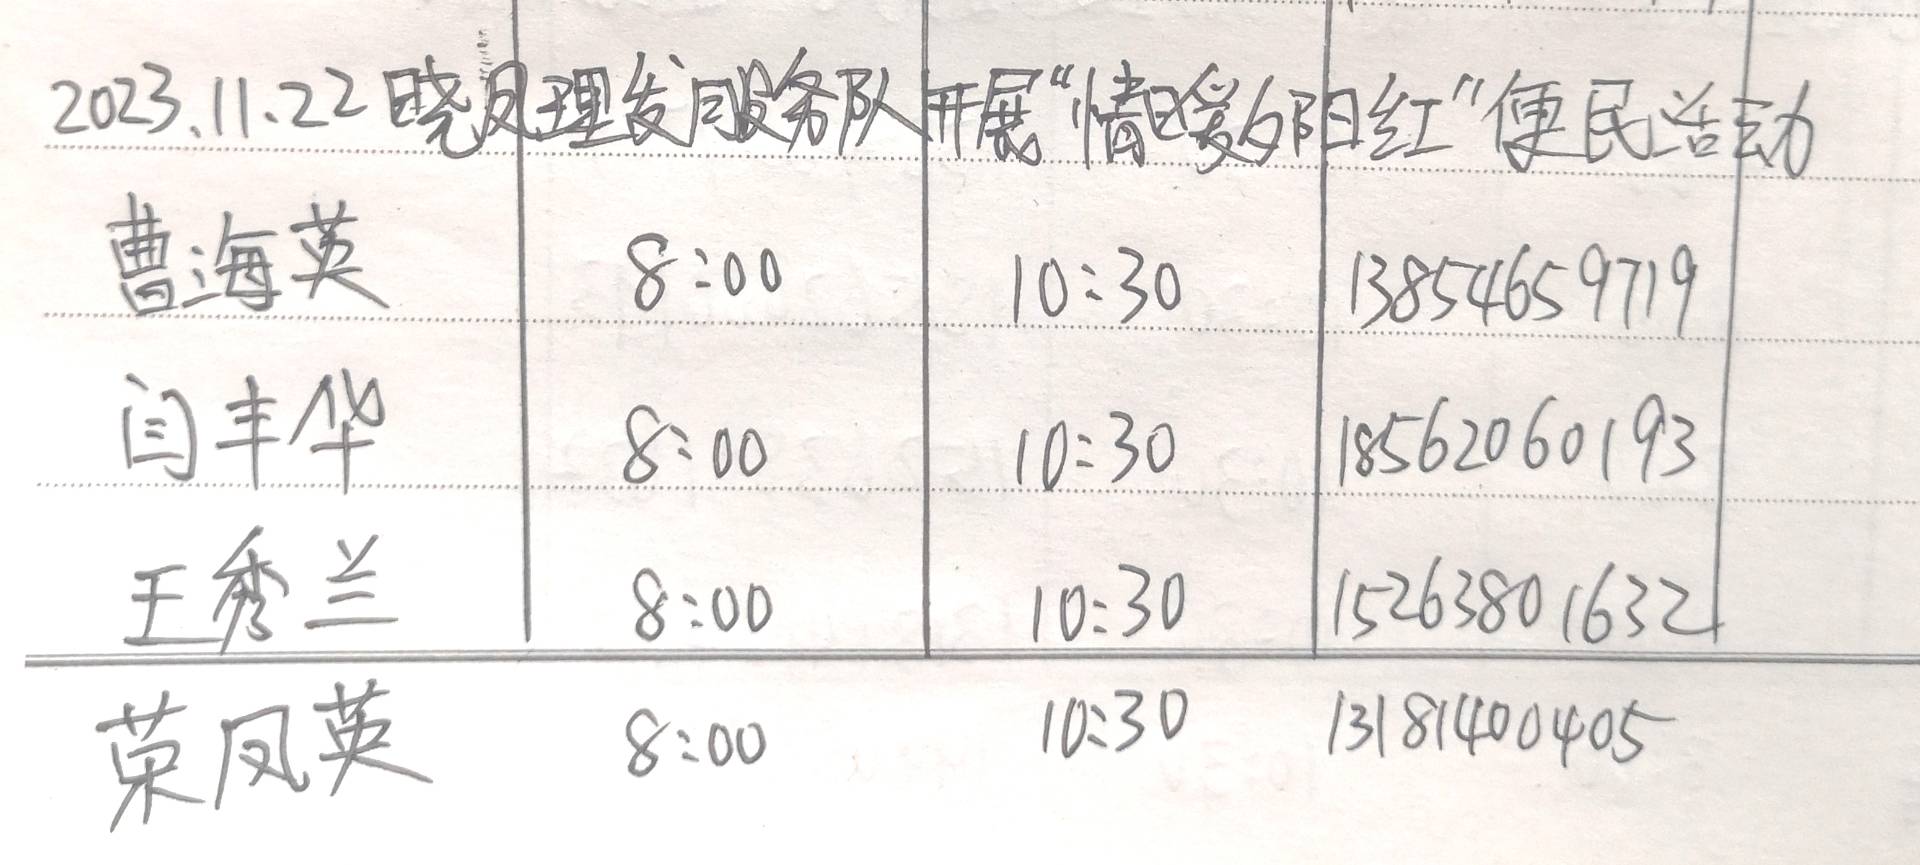 2023.11.22 晓凤理发服务队开展“情暖夕阳红”便民活动
曹海英 8:00 10:30 13854659719
闫丰华 8:00 10:30 18562060193
王秀兰 8:00 10:30 15263801632
荣凤英 8:00 10:30 13181400405